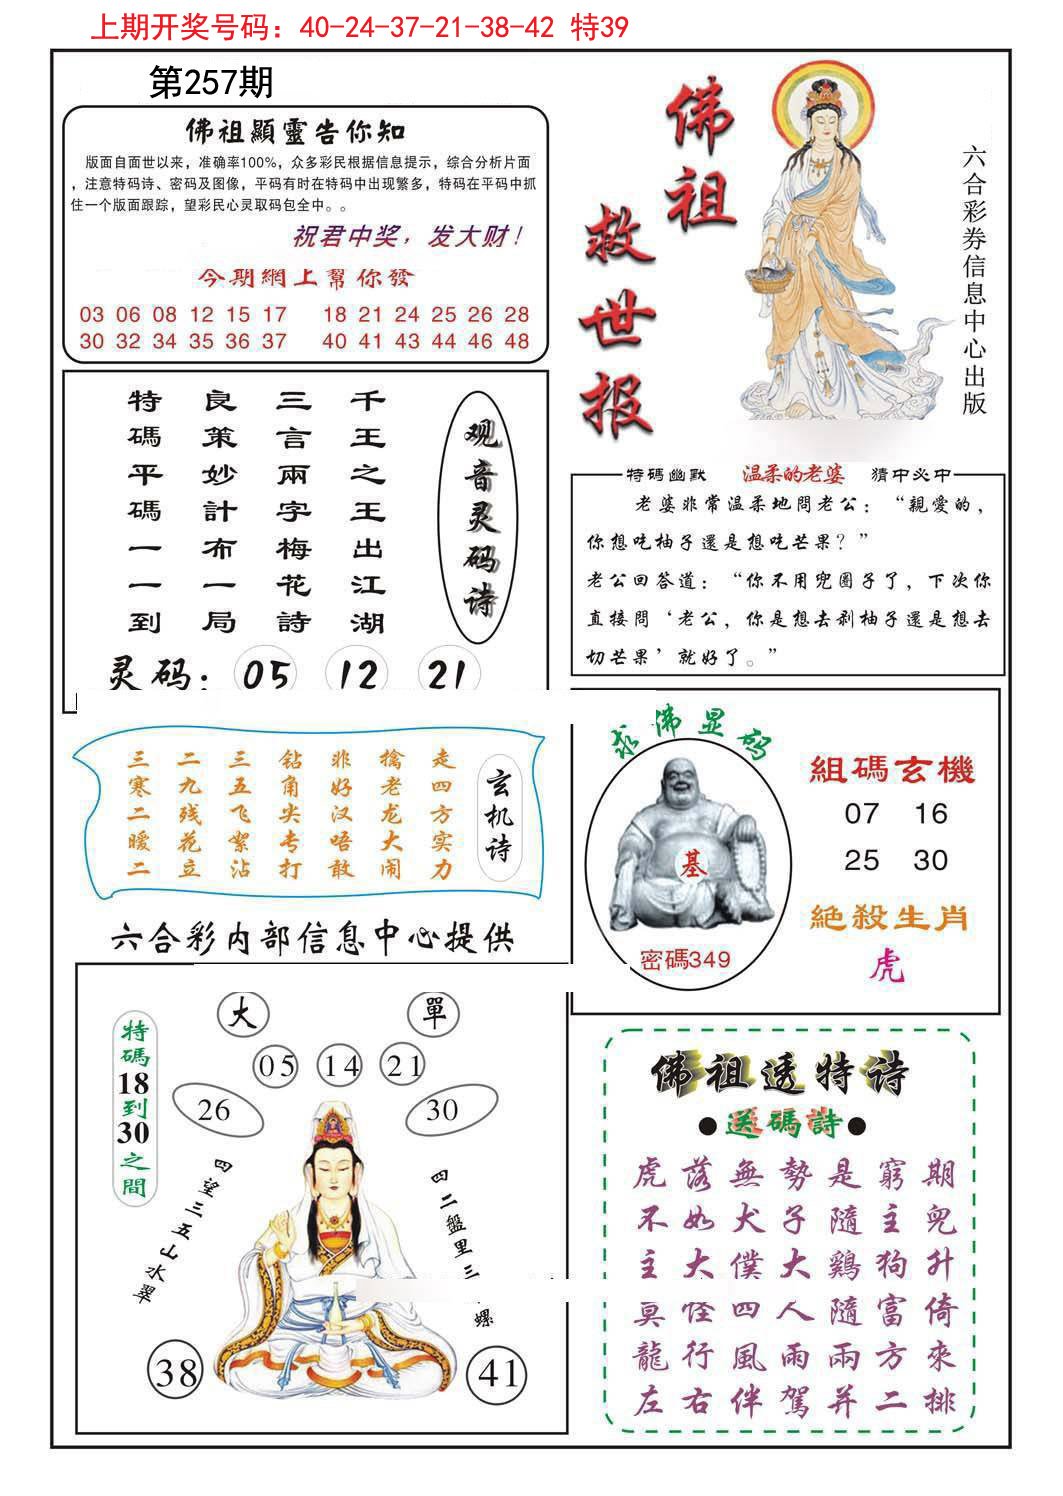 上期开奖号码：40-24-37-21-38-42 特39
第257期
佛祖顯靈告你知
版面自面世以来，准确率100%，众多彩民根据信息提示，综合分析片面
，注意特码诗、密码及图像，平码有时在特码中出现繁多，特码在平码中抓
住一个版面跟踪，望彩民心灵取码包全中。。
祝君中奖，发大财！
今期網上幫你發
03 06 08 12 15 17 18 21 24 25 26 28
30 32 34 35 36 37 40 41 43 44 46 48
佛祖
救世报
六合彩券信息中心出版
观音灵码诗
千王之王出江湖
三言兩字梅花詩
良策妙計布一局
特碼平碼一一到
灵码：05 12 21
特碼幽默 温柔的老婆 猜中必中
老婆非常温柔地問老公：“親愛的，
你想吃柚子還是想吃芒果？”
老公回答道：“你不用兜圈子了，下次你
直接問‘老公，你是想去剥柚子還是想去
切芒果’就好了。”
玄机诗
走四方实力
擒老龙大闹
非好汉唔敢
钻角尖专打
三五飞絮沾
二九残花立
三寒二暖二
六合彩内部信息中心提供
求佛显码
基
密碼349
組碼玄機
07 16
25 30
絶殺生肖
虎
大 單
05 14 21
26 30
特碼18到30之間
四望三五山水翠
四二盤里三
螺
38 41
佛祖透特诗
●送碼詩●
虎落無勢是窮期
不如犬子隨主兜
主大僕大鷄狗升
真怪四人隨富倚
龍行風雨兩方來
左右伴駕并二排